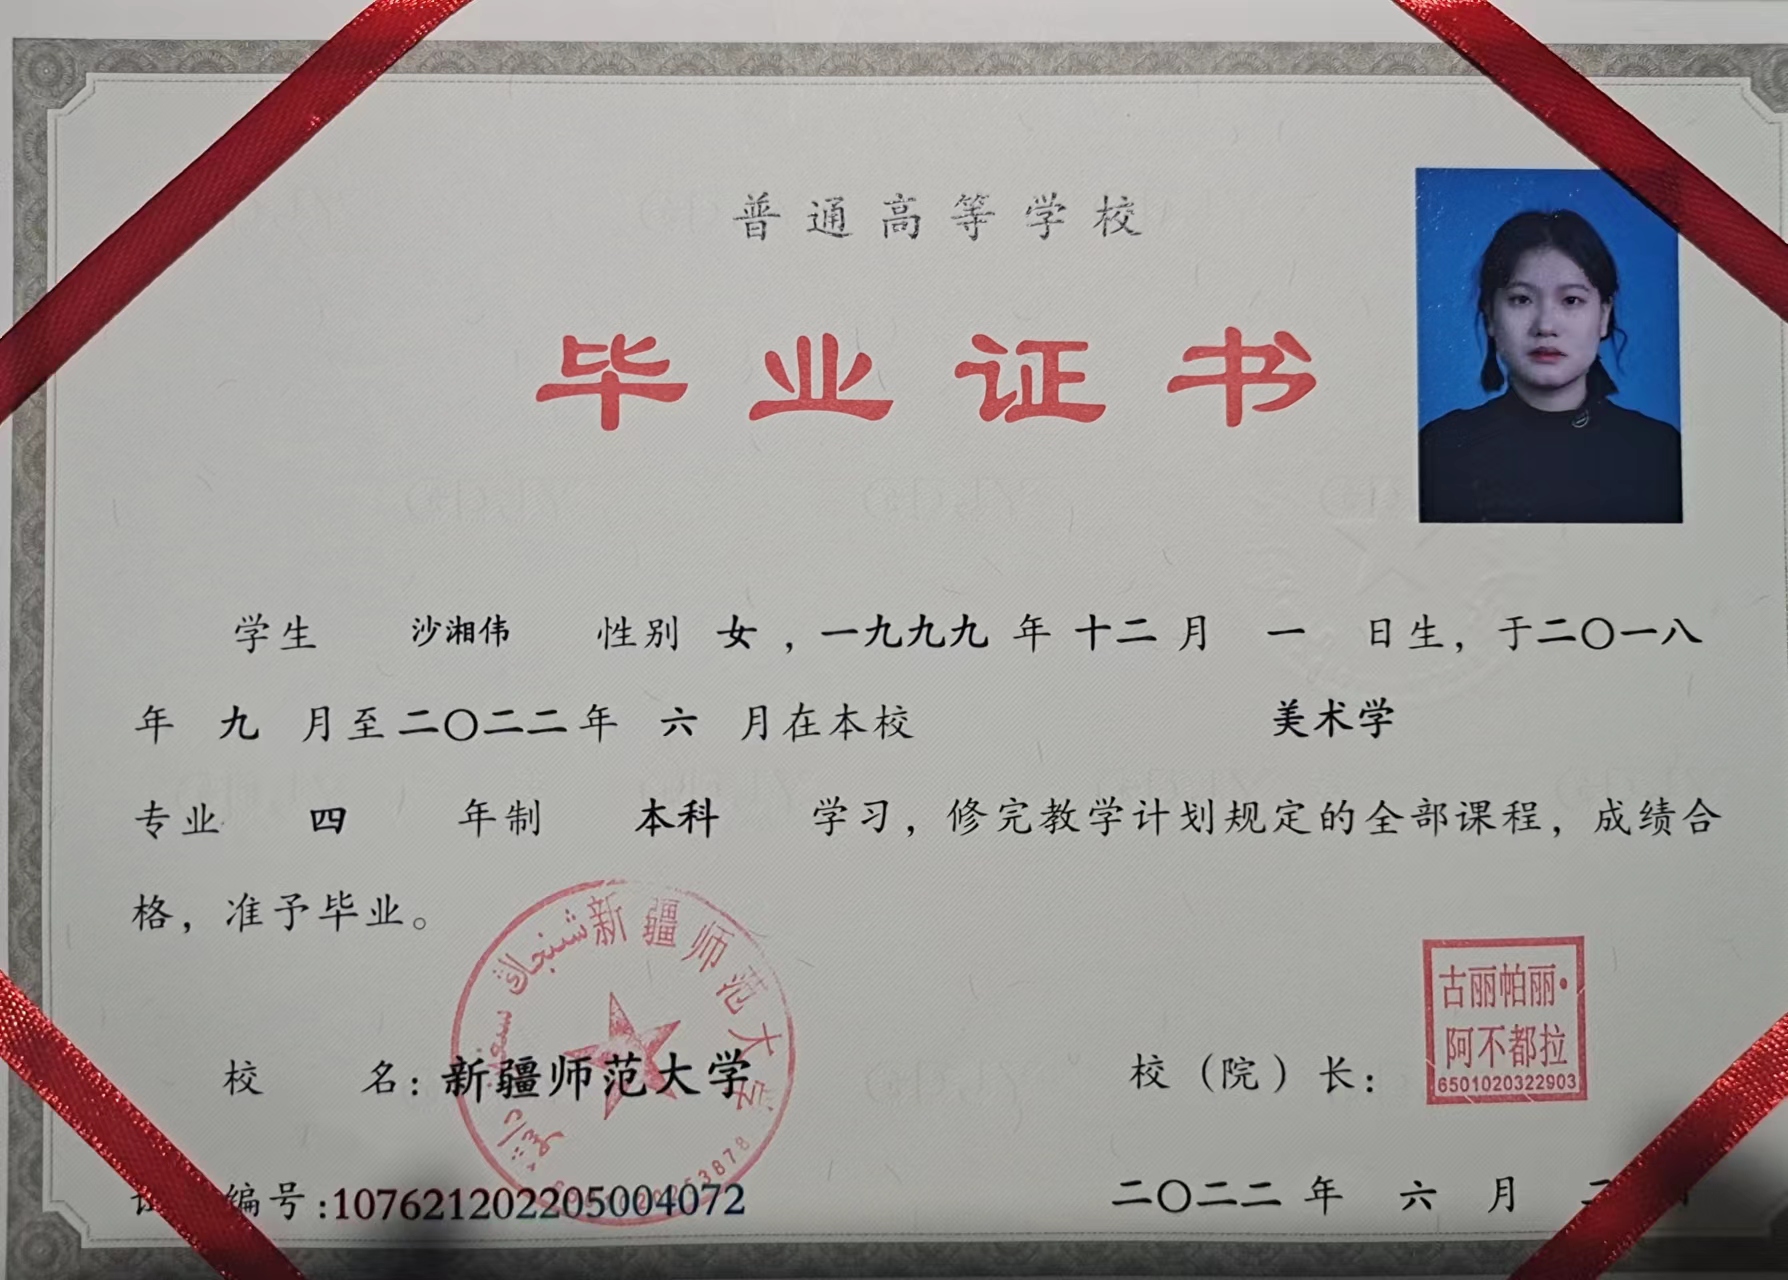 普通高等学校
毕业证书
学生 沙湘伟 性别 女，一九九九年十二月 一 日生，于二〇一八
年 九 月至二〇二二年 六 月在本校 美术学
专业 四 年制 本科 学习，修完教学计划规定的全部课程，成绩合
格，准予毕业。
新疆师范大学
校 名：新疆师范大学
校（院）长：
古丽帕丽·
阿不都拉
6501020322903
编号:107621202205004072
二〇二二年 六 月